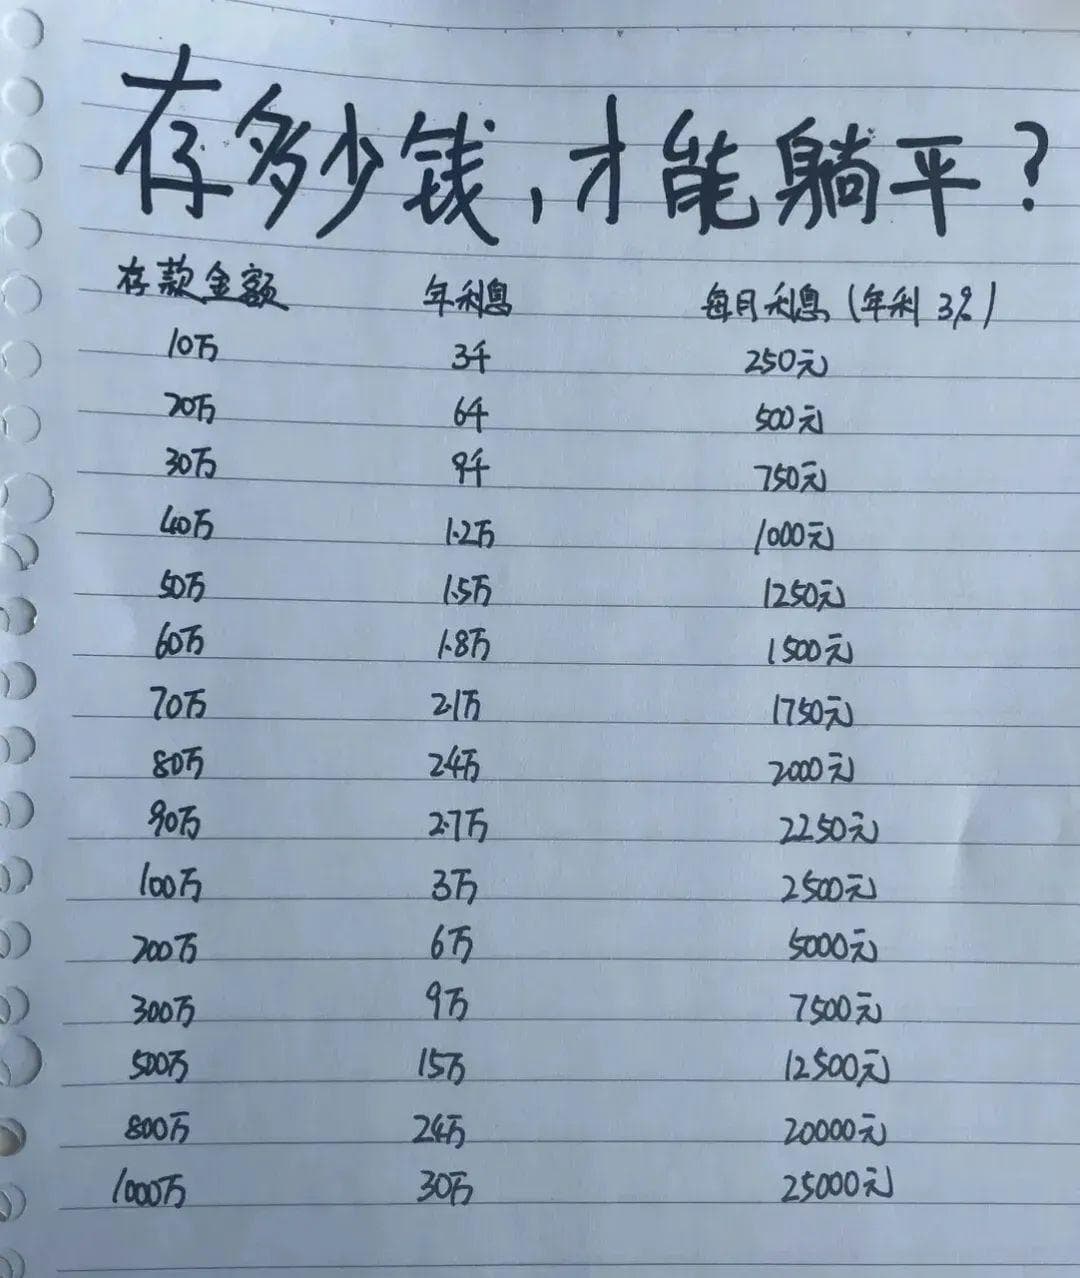 存多少钱,才能躺平?
存款金额 年利息 每月利息(年利3%)
10万 3千 250元
20万 6千 500元
30万 9千 750元
40万 1.2万 1000元
50万 1.5万 1250元
60万 1.8万 1500元
70万 2.1万 1750元
80万 2.4万 2000元
90万 2.7万 2250元
100万 3万 2500元
200万 6万 5000元
300万 9万 7500元
500万 15万 12500元
800万 24万 20000元
1000万 30万 25000元